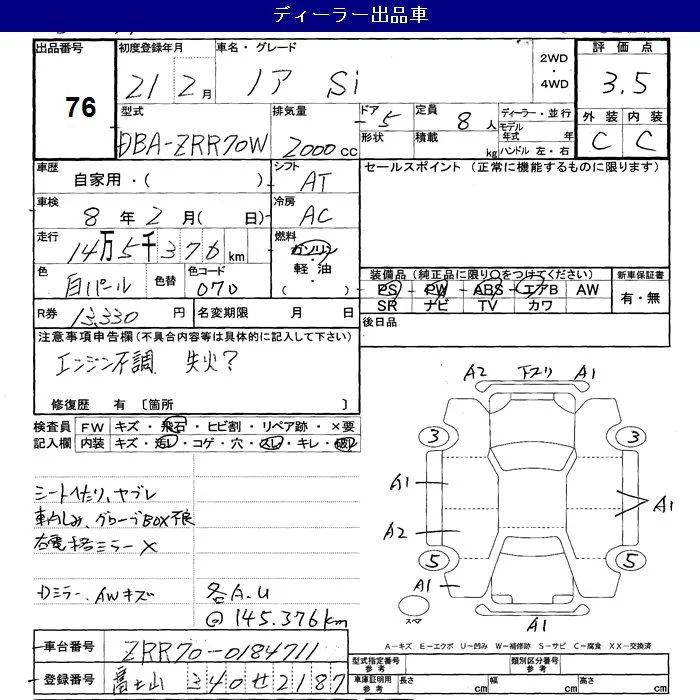 ディーラー出品車
出品番号
76
初度登録年月 21年 2月
車名・グレード ノア Si
2WD・4WD
評価点 3.5
外装 C 内装 C
型式 DBA-ZRR70W
排気量 2000cc
ドア 5 形状
定員 8人 積載 kg
ディーラー・並行
モデル年式 年
ハンドル 左・右
車歴 自家用・( )
シフト AT
セールスポイント(正常に機能するものに限ります)
車検 8年 2月( 日)
冷房 AC
走行 14万5千376km
燃料 ガソリン・軽油・( )
色 白パール 色替
色コード 070
装備品(純正品に限り○をつけてください)
PS PW ABS エアB AW
SR ナビ TV カワ
新車保証書 有・無
R券 13,330円
名変期限 月 日
後日品
注意事項申告欄(不具合内容等は具体的に記入して下さい)
エンジン不調 失火?
修復歴 有 〔箇所 〕
検査員記入欄
FW キズ・飛石・ヒビ割・リペア跡・×要
内装 キズ・汚レ・コゲ・穴・スレ・キレ・破レ
シートヘタリ、ヤブレ
グローブBOX不良
右電格ミラーX
Dミラー、AWキズ
各A.U
@145.376km
A2 下スリ A1
3 3
A1
A1
A2
5 5
A1
スペア
A1
A-キズ E-エクボ U-凹み W-補修跡 S-サビ C-腐食 XX-交換済
車台番号 ZRR70-0184711
登録番号 富士山 340せ2187
型式指定番号 参考
類別区分番号 参考
車庫証明用 参考 長さ cm 幅 cm 高さ cm